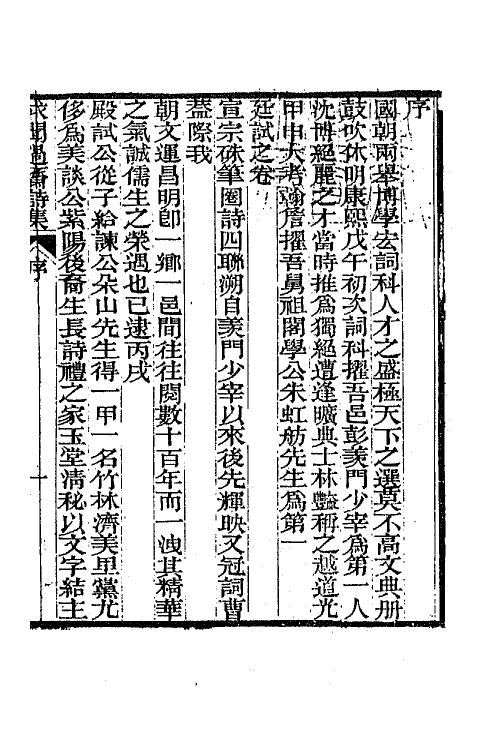 序
國朝兩舉博學宏詞科人才之盛極天下之選莫不高文典册
鼓吹休明康熙戊午初次詞科擢吾邑彭羨門少宰爲第一人
沈博絕麗之才當時推爲獨絕遭逢曠典士林豔稱之越道光
甲申大考翰詹擢吾舅祖閣學公朱虹舫先生爲第一
廷試之卷
宣宗硃筆圈詩四聯溯自羨門少宰以來後先輝映又冠詞曹
蓋際我
朝文運昌明卽一鄉一邑間往往閱數十百年而一洩其精華
之氣誠儒生之榮遇也已逮丙戌
殿試公從子給諫公朵山先生得一甲一名竹林濟美里黨尤
侈爲美談公紫陽後裔生長詩禮之家玉堂淸秘以文字結主
求聞過齋詩集
序
一